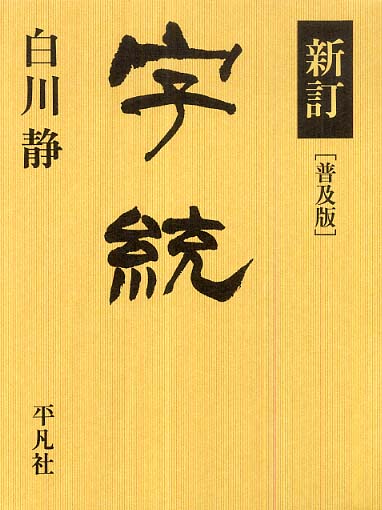 新訂
[普及版]
字統
白川静
平凡社